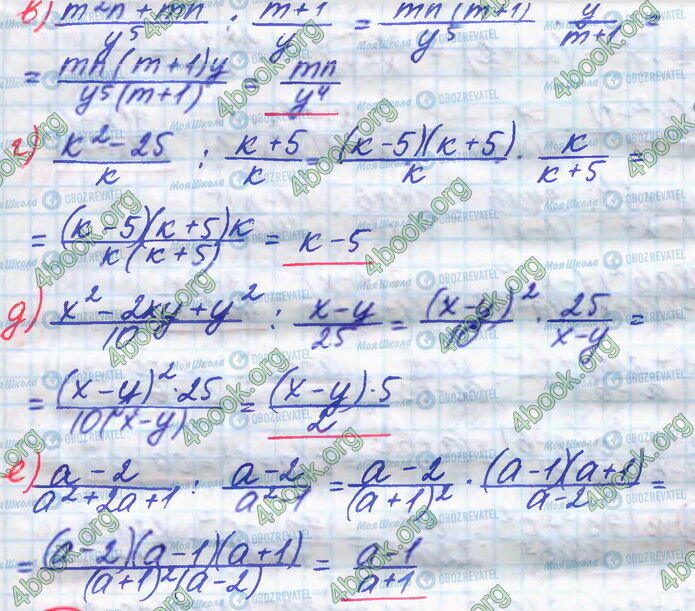 в) (m²n + mn)/y⁵ : (m+1)/y = (mn(m+1))/y⁵ · y/(m+1) =
= (mn(m+1)y)/(y⁵(m+1)) = mn/y⁴
г) (к² - 25)/к : (к+5)/к = ((к-5)(к+5))/к · к/(к+5) =
= ((к-5)(к+5)к)/(к(к+5)) = к-5
д) (x² - 2xy + y²)/10 : (x-y)/25 = (x-y)²/10 · 25/(x-y) =
= ((x-y)²·25)/(10(x-y)) = ((x-y)·5)/2
е) (a-2)/(a²+2a+1) : (a-2)/(a²-1) = (a-2)/(a+1)² · ((a-1)(a+1))/(a-2) =
= ((a-2)(a-1)(a+1))/((a+1)²(a-2)) = (a-1)/(a+1)
4book.org
Моя Школа
OBOZREVATEL